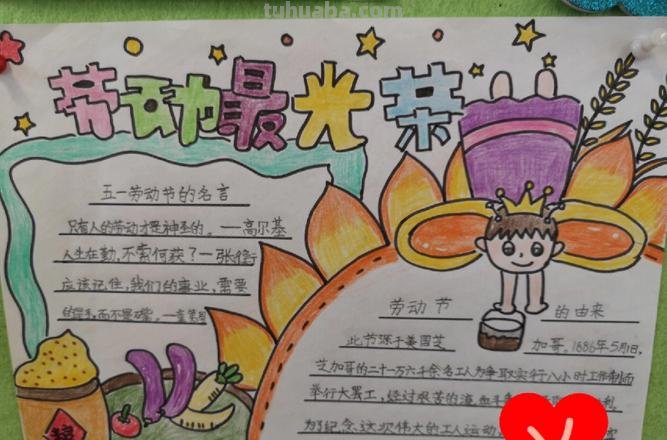 tuhuaba.com
劳动最光荣
五一劳动节的名言
只有人的劳动才是神圣的。一高尔基
人生在勤,不索何获?一张衡
应该记住,我们的事业,需要
的是手,而不是嘴。一童第周
劳动节的由来
此节源于美国芝加哥。1886年5月1日,
芝加哥的二十一万六千余名工人为争取实行八小时工作制而
举行大罢工,经过艰苦的流血
为了纪念这次伟大的工人运动